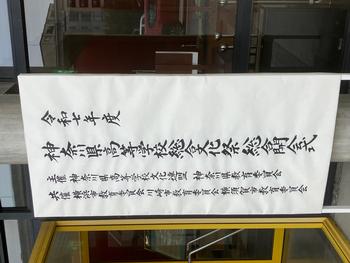 令和七年度
神奈川県高等学校総合文化祭総合開会式
主催 神奈川県高等学校文化連盟 神奈川県教育委員会
共催 横浜市教育委員会 川崎市教育委員会 横須賀市教育委員会